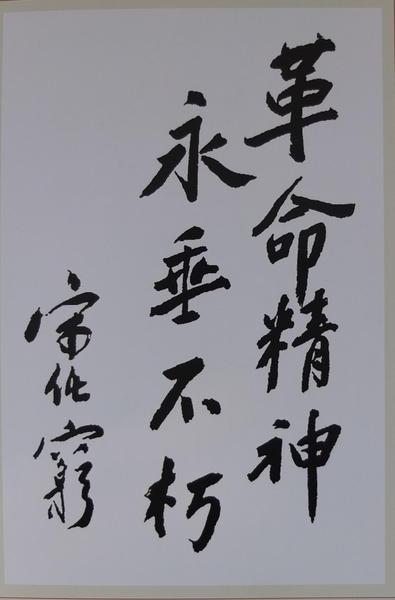 革命精神
永垂不朽
宋任穷